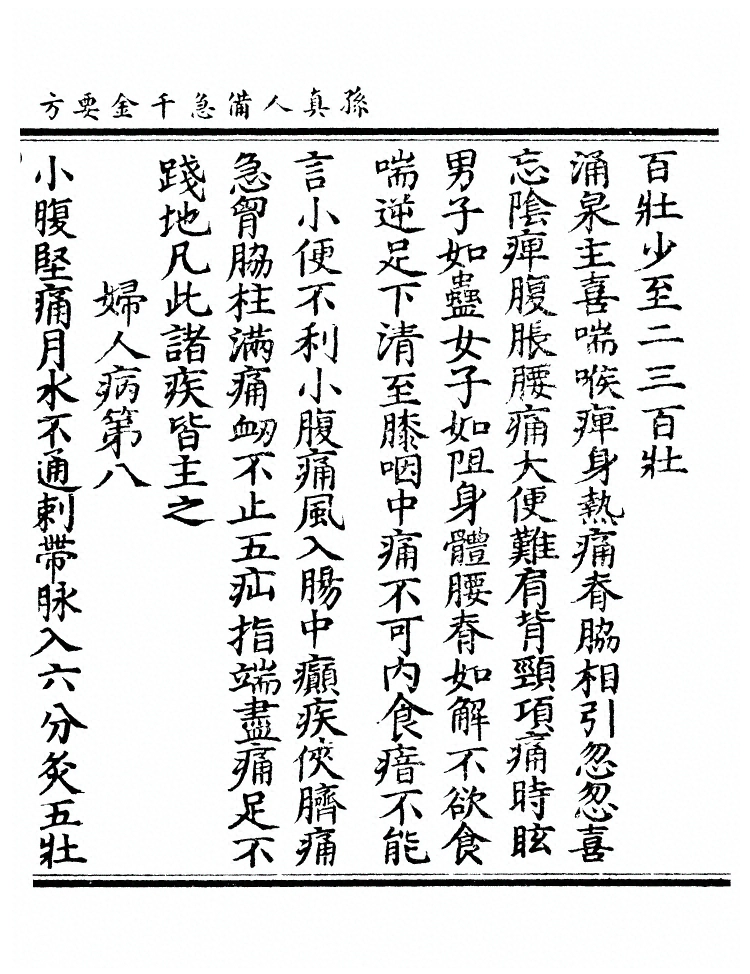 孫真人備急千金要方
百壯少至二三百壯
涌泉主喜喘喉痺身熱痛脊脇相引忽忽喜
忘陰痺腹脹腰痛大便難肩背頸項痛時眩
男子如蠱女子如阻身體腰脊如解不欲食
喘逆足下清至膝咽中痛不可內食瘖不能
言小便不利小腹痛風入腸中癲疾俠臍痛
急胷脇柱滿痛衂不止五疝指端盡痛足不
踐地凡此諸疾皆主之
婦人病第八
小腹堅痛月水不通刺帶脉入六分灸五壯